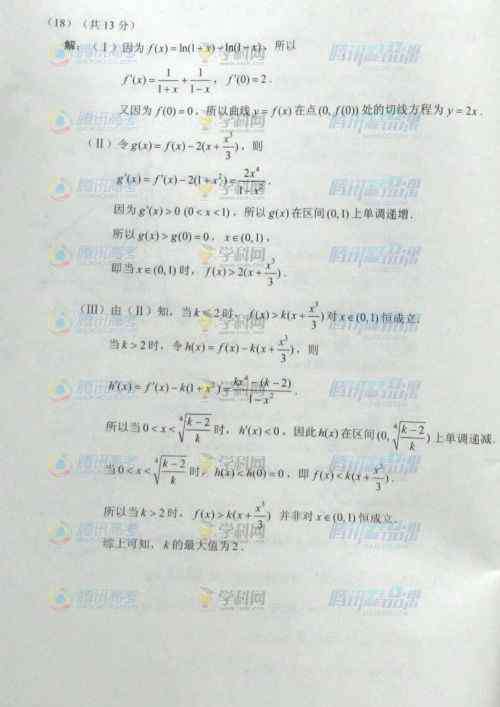 (18)（共 13 分）
解：（Ⅰ）因为 f(x)=ln(1+x)-ln(1-x)，所以
f′(x)=1/(1+x)+1/(1-x)，f′(0)=2．
又因为 f(0)=0，所以曲线 y=f(x) 在点(0, f(0)) 处的切线方程为 y=2x．
（Ⅱ）令 g(x)=f(x)-2(x+x³/3)，则
g′(x)=f′(x)-2(1+x²)=2x⁴/(1-x²)．
因为 g′(x)>0 (0<x<1)，所以 g(x) 在区间(0,1)上单调递增．
所以 g(x)>g(0)=0，x∈(0,1)，
即当 x∈(0,1) 时，f(x)>2(x+x³/3)．
（Ⅲ）由（Ⅱ）知，当 k≤2 时，f(x)>k(x+x³/3) 对 x∈(0,1) 恒成立．
当 k>2 时，令 h(x)=f(x)-k(x+x³/3)，则
h′(x)=f′(x)-k(1+x²)=(kx⁴-(k-2))/(1-x²)．
所以当 0<x<⁴√((k-2)/k) 时，h′(x)<0，因此 h(x) 在区间(0, ⁴√((k-2)/k)) 上单调递减．
当 0<x<⁴√((k-2)/k) 时，h(x)<h(0)=0，即 f(x)<k(x+x³/3)．
所以当 k>2 时，f(x)>k(x+x³/3) 并非对 x∈(0,1) 恒成立．
综上可知，k 的最大值为 2．
腾讯高考 学科网 腾讯精品课